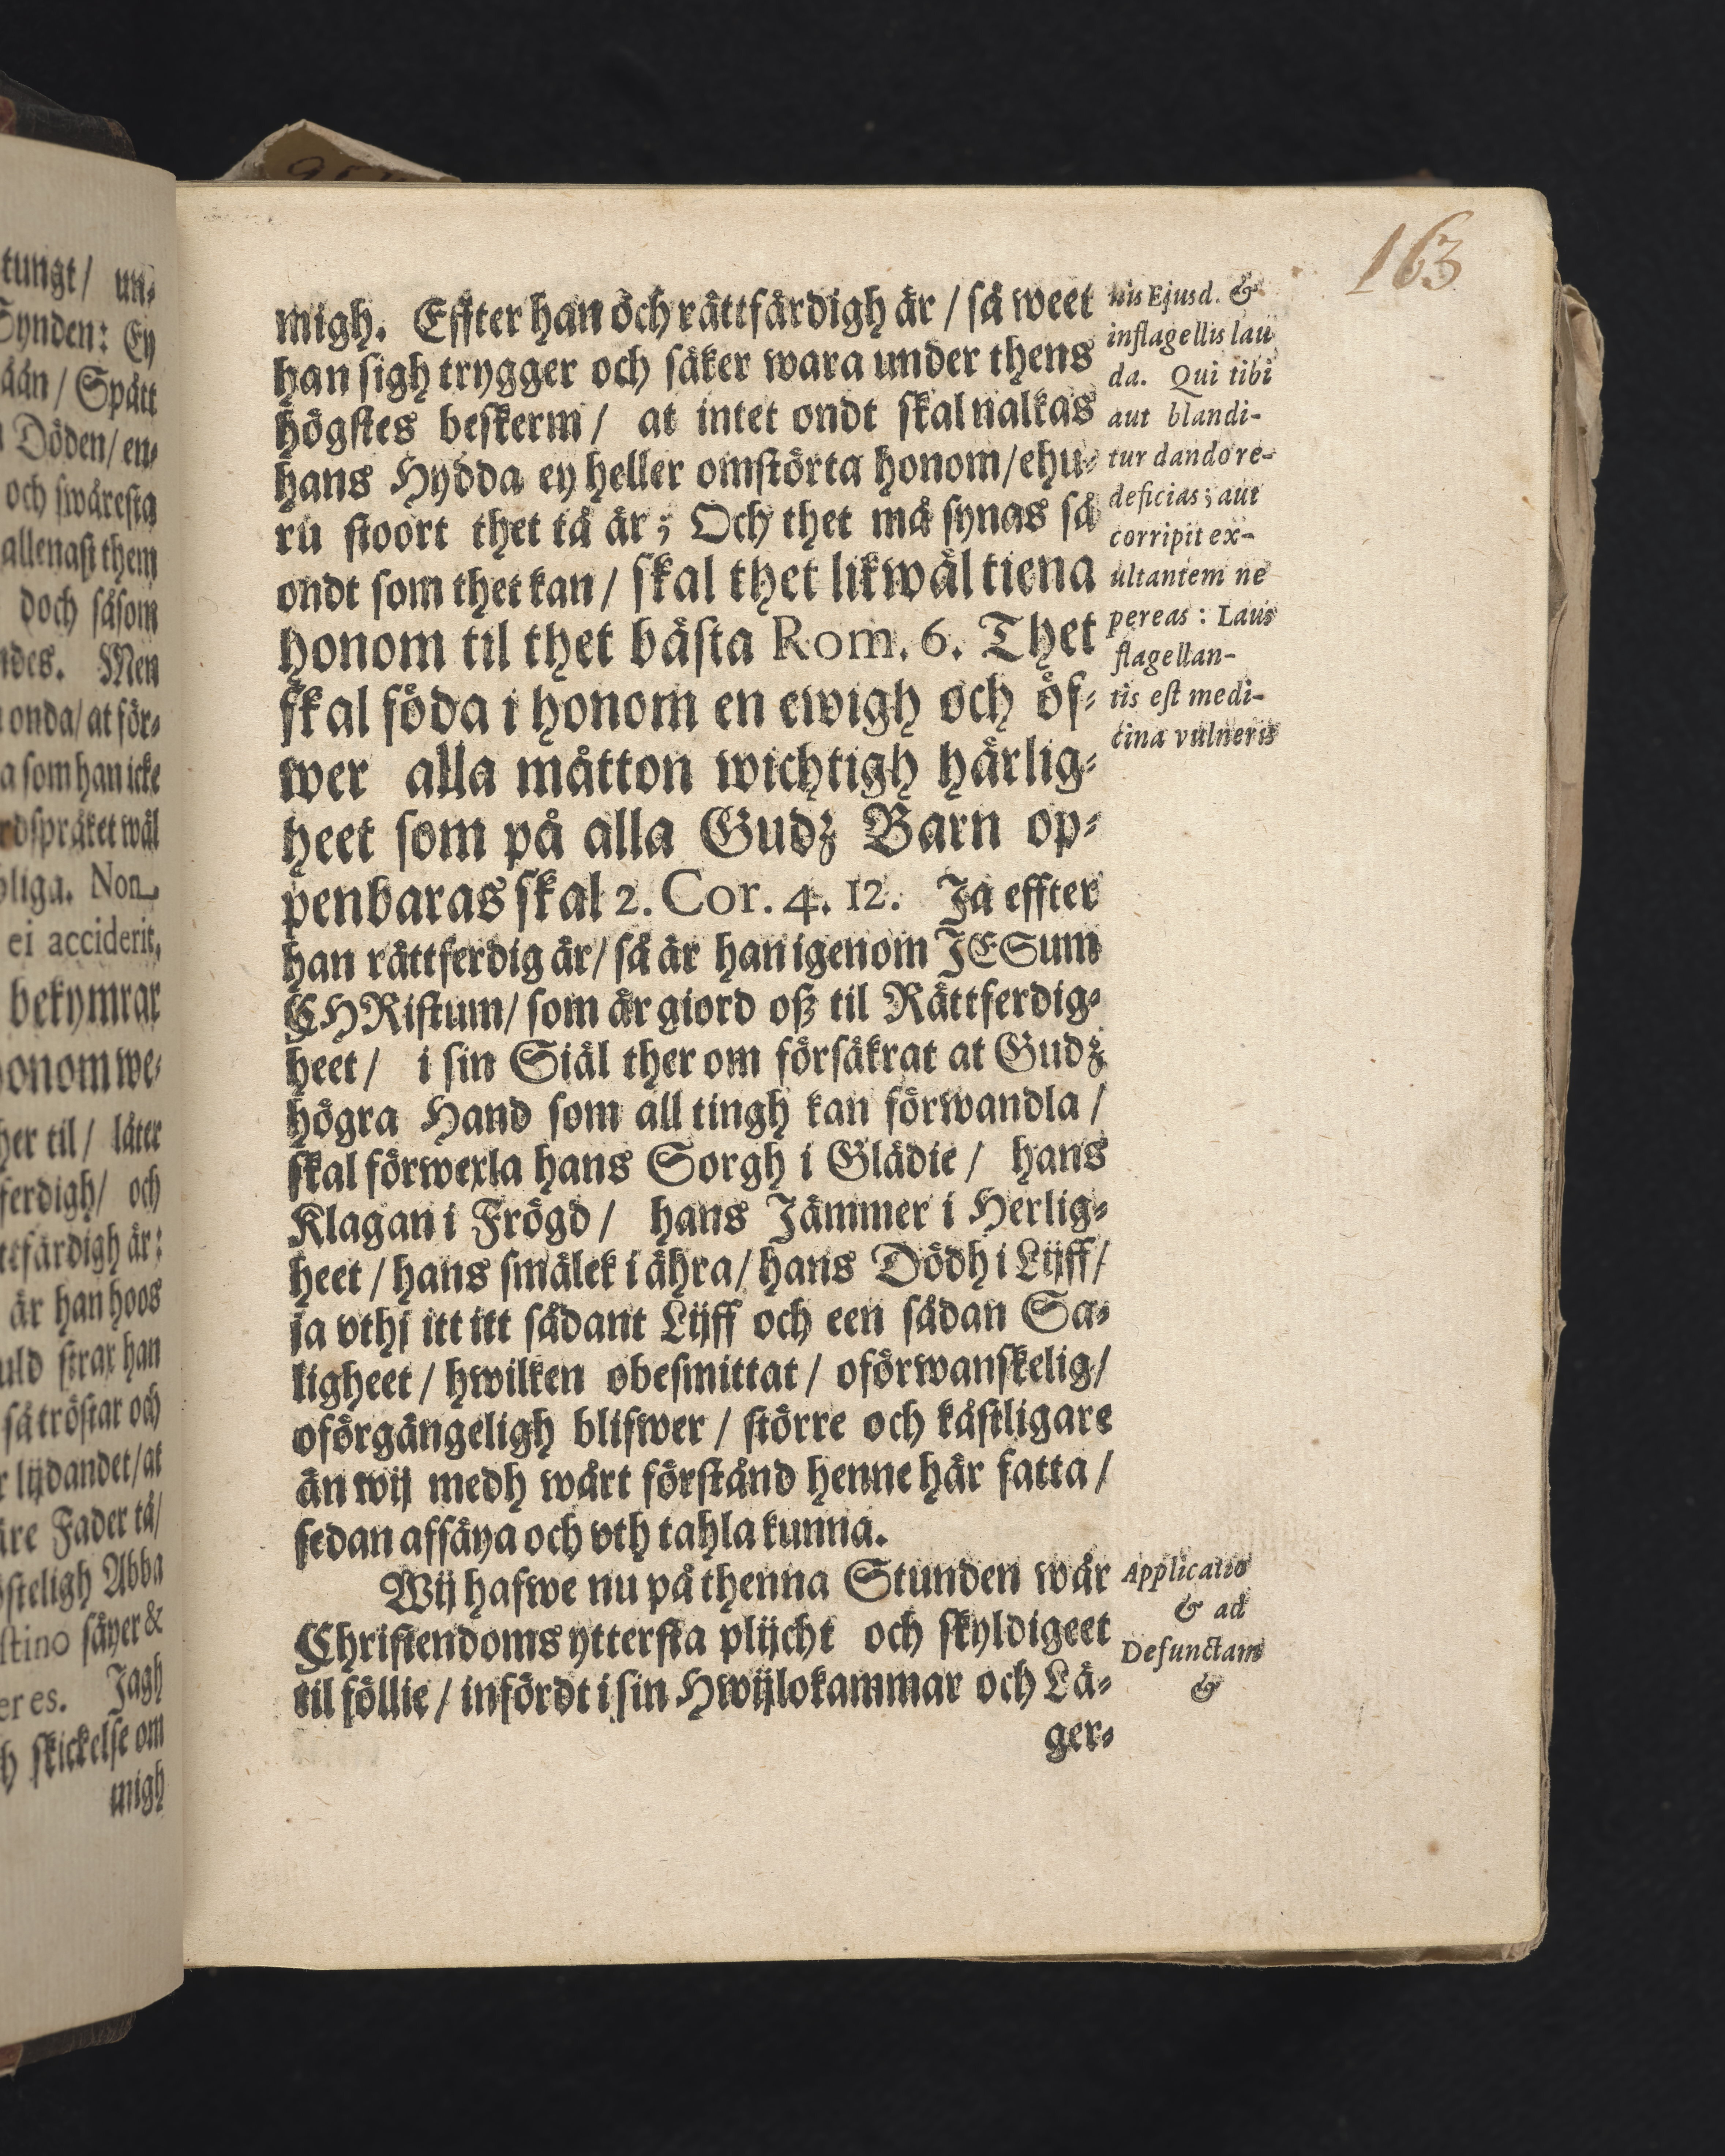 163
migh. Effter han och rättfärdigh är / så weet
han sigh trygger och säker wara under thens
högstes beskerm / at intet ondt skal nalkas
hans Hydda ey heller omstörta honom/ehu-
ru stoort thet tå är; Och thet må synas så
ondt som thet kan / skal thet likwäl tiena
honom til thet bästa Rom. 6. Thet
skal föda i honom en ewigh och öf-
wer alla måtton wichtigh härlig-
heet som på alla Gudz Barn op-
penbaras skal 2. Cor. 4. 12. Ja effter
han rättferdig är/ så är han igenom JESum
CHRistum/ som är giord oß til Rättferdig-
heet / i sin Siäl ther om försäkrat at Gudz
högra Hand som all tingh kan förwandla /
skal förwexla hans Sorgh i Glädie / hans
Klagan i Frögd / hans Jämmer i Herlig-
heet / hans smälek i ähra/ hans Dödh i Lijff/
ja vthi itt itt sådant Lijff och een sådan Sa-
ligheet / hwilken obesmittat / oförwanskelig/
oförgängeligh blifwer / större och kåstligare
än wij medh wårt förstånd henne här fatta /
sedan affäya och vth tahla kunna.
Wij hafwe nu på thenna Stunden wår
Christendoms ytterfta plijcht och skyldigeet
til föllie / infördt i sin Hwijlokammar och Lä-
ger-
nis Ejusd. &
inflagellis lau
da. Qui tibi
aut blandi-
tur dando re-
deficias; aut
corripit ex-
ultantem ne
pereas: Laus
flagellan-
tis est medi-
cina vulneris
Applicatio
& ad
Defunctam
&
tungt / un-
Synden: Ey
Spått
Döden/ en-
och swåresta
allenast them
doch såsom
Men
onda/ at för-
som han icke
wäl
Non
ei acciderit,
bekymrar
til / låter
och
är han hoos
han
så tröstar och
lijdandet/at
Fader tå/
Abba
säyer &
Jagh
skickelse om
migh